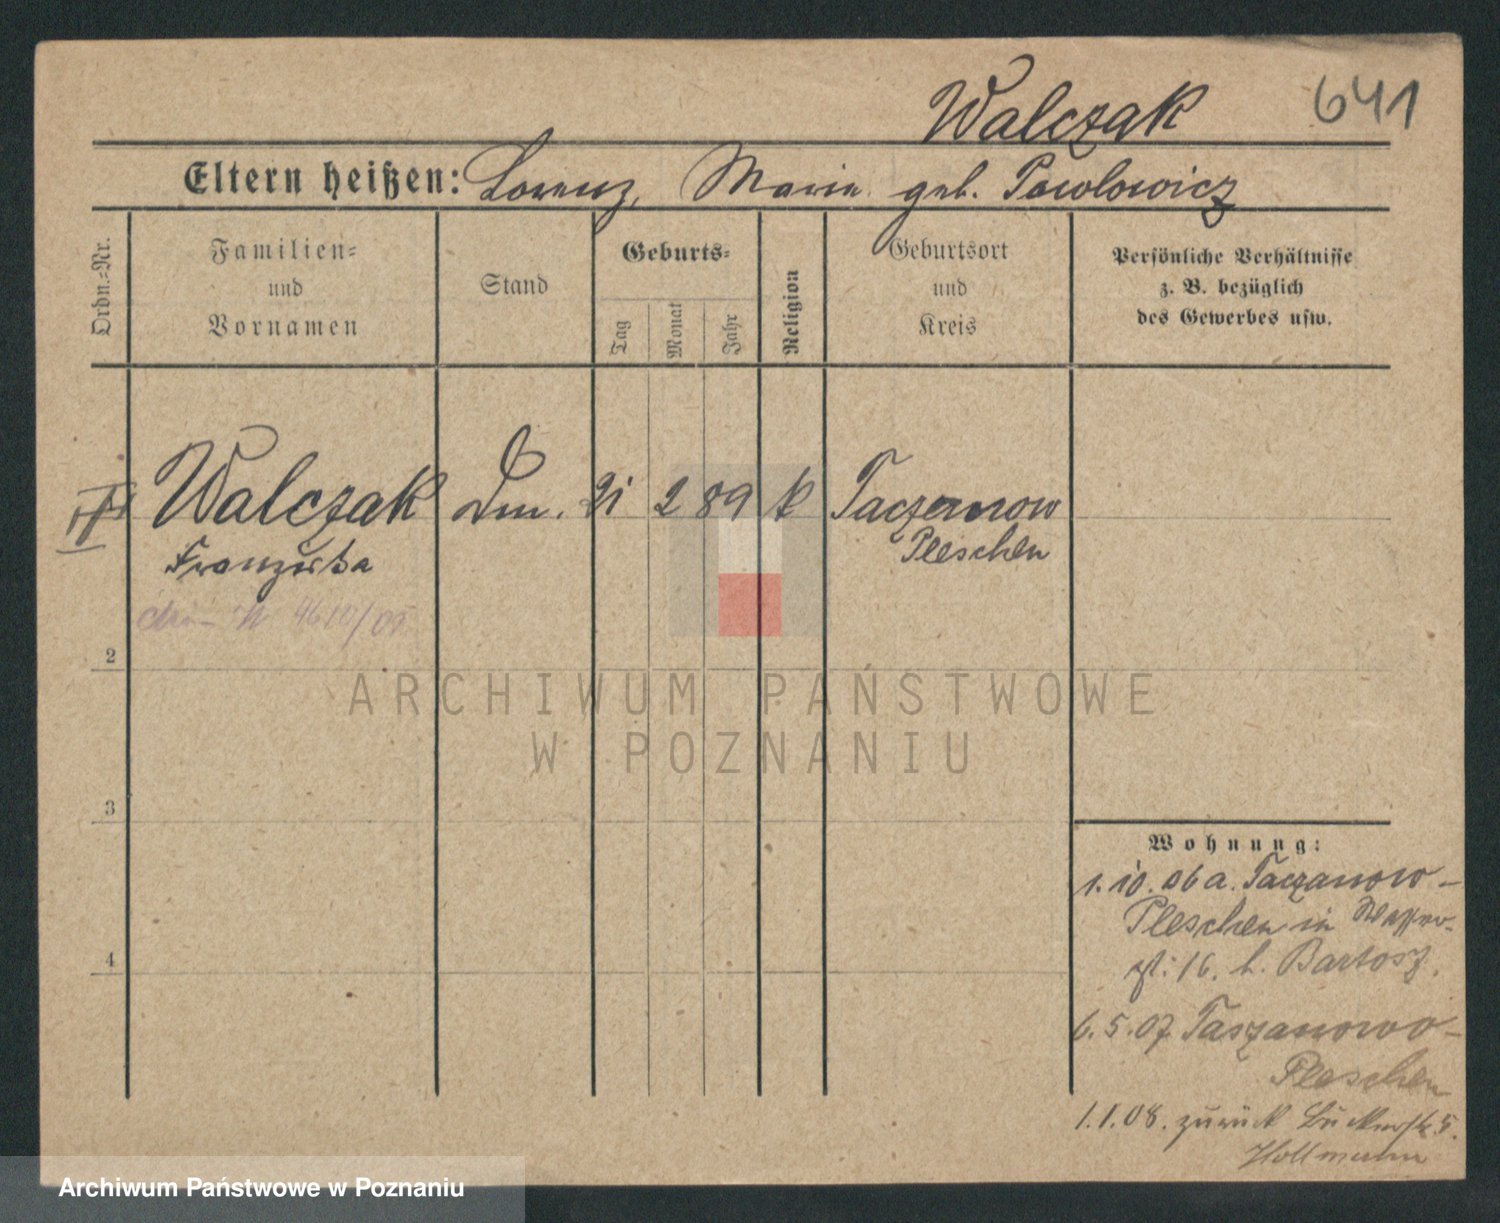 Walczak 641
Eltern heißen: Lorenz, Marie geb. Pawlowicz
Ordn.-Nr.
Familien-
und
Vornamen
Stand
Geburts-
Tag
Monat
Jahr
Religion
Geburtsort
und
Kreis
Persönliche Verhältnisse
z. B. bezüglich
des Gewerbes usw.
Walczak Dm. 21 2 89 k Taczanow
Franziska Pleschen
4610/09
2
3
4
ARCHIWUM PAŃSTWOWE
W POZNANIU
Wohnung:
1.10.06 a. Taczanow-
Pleschen in Wasser-
16. b. Bartosz.
6.5.07 Taszanowo-
Pleschen
1.1.08. zurück 5.
Hollmann
Archiwum Państwowe w Poznaniu